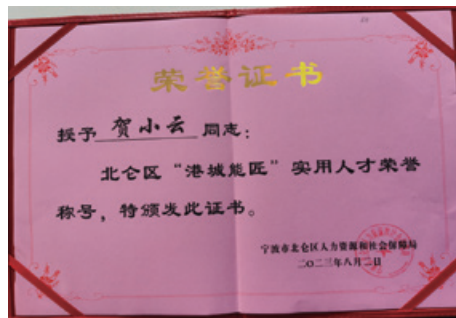 荣誉证书
授予 贺小云 同志：
北仑区“港城能匠”实用人才荣誉
称号，特颁发此证书。
宁波市北仑区人力资源和社会保障局
二〇二三年八月二日